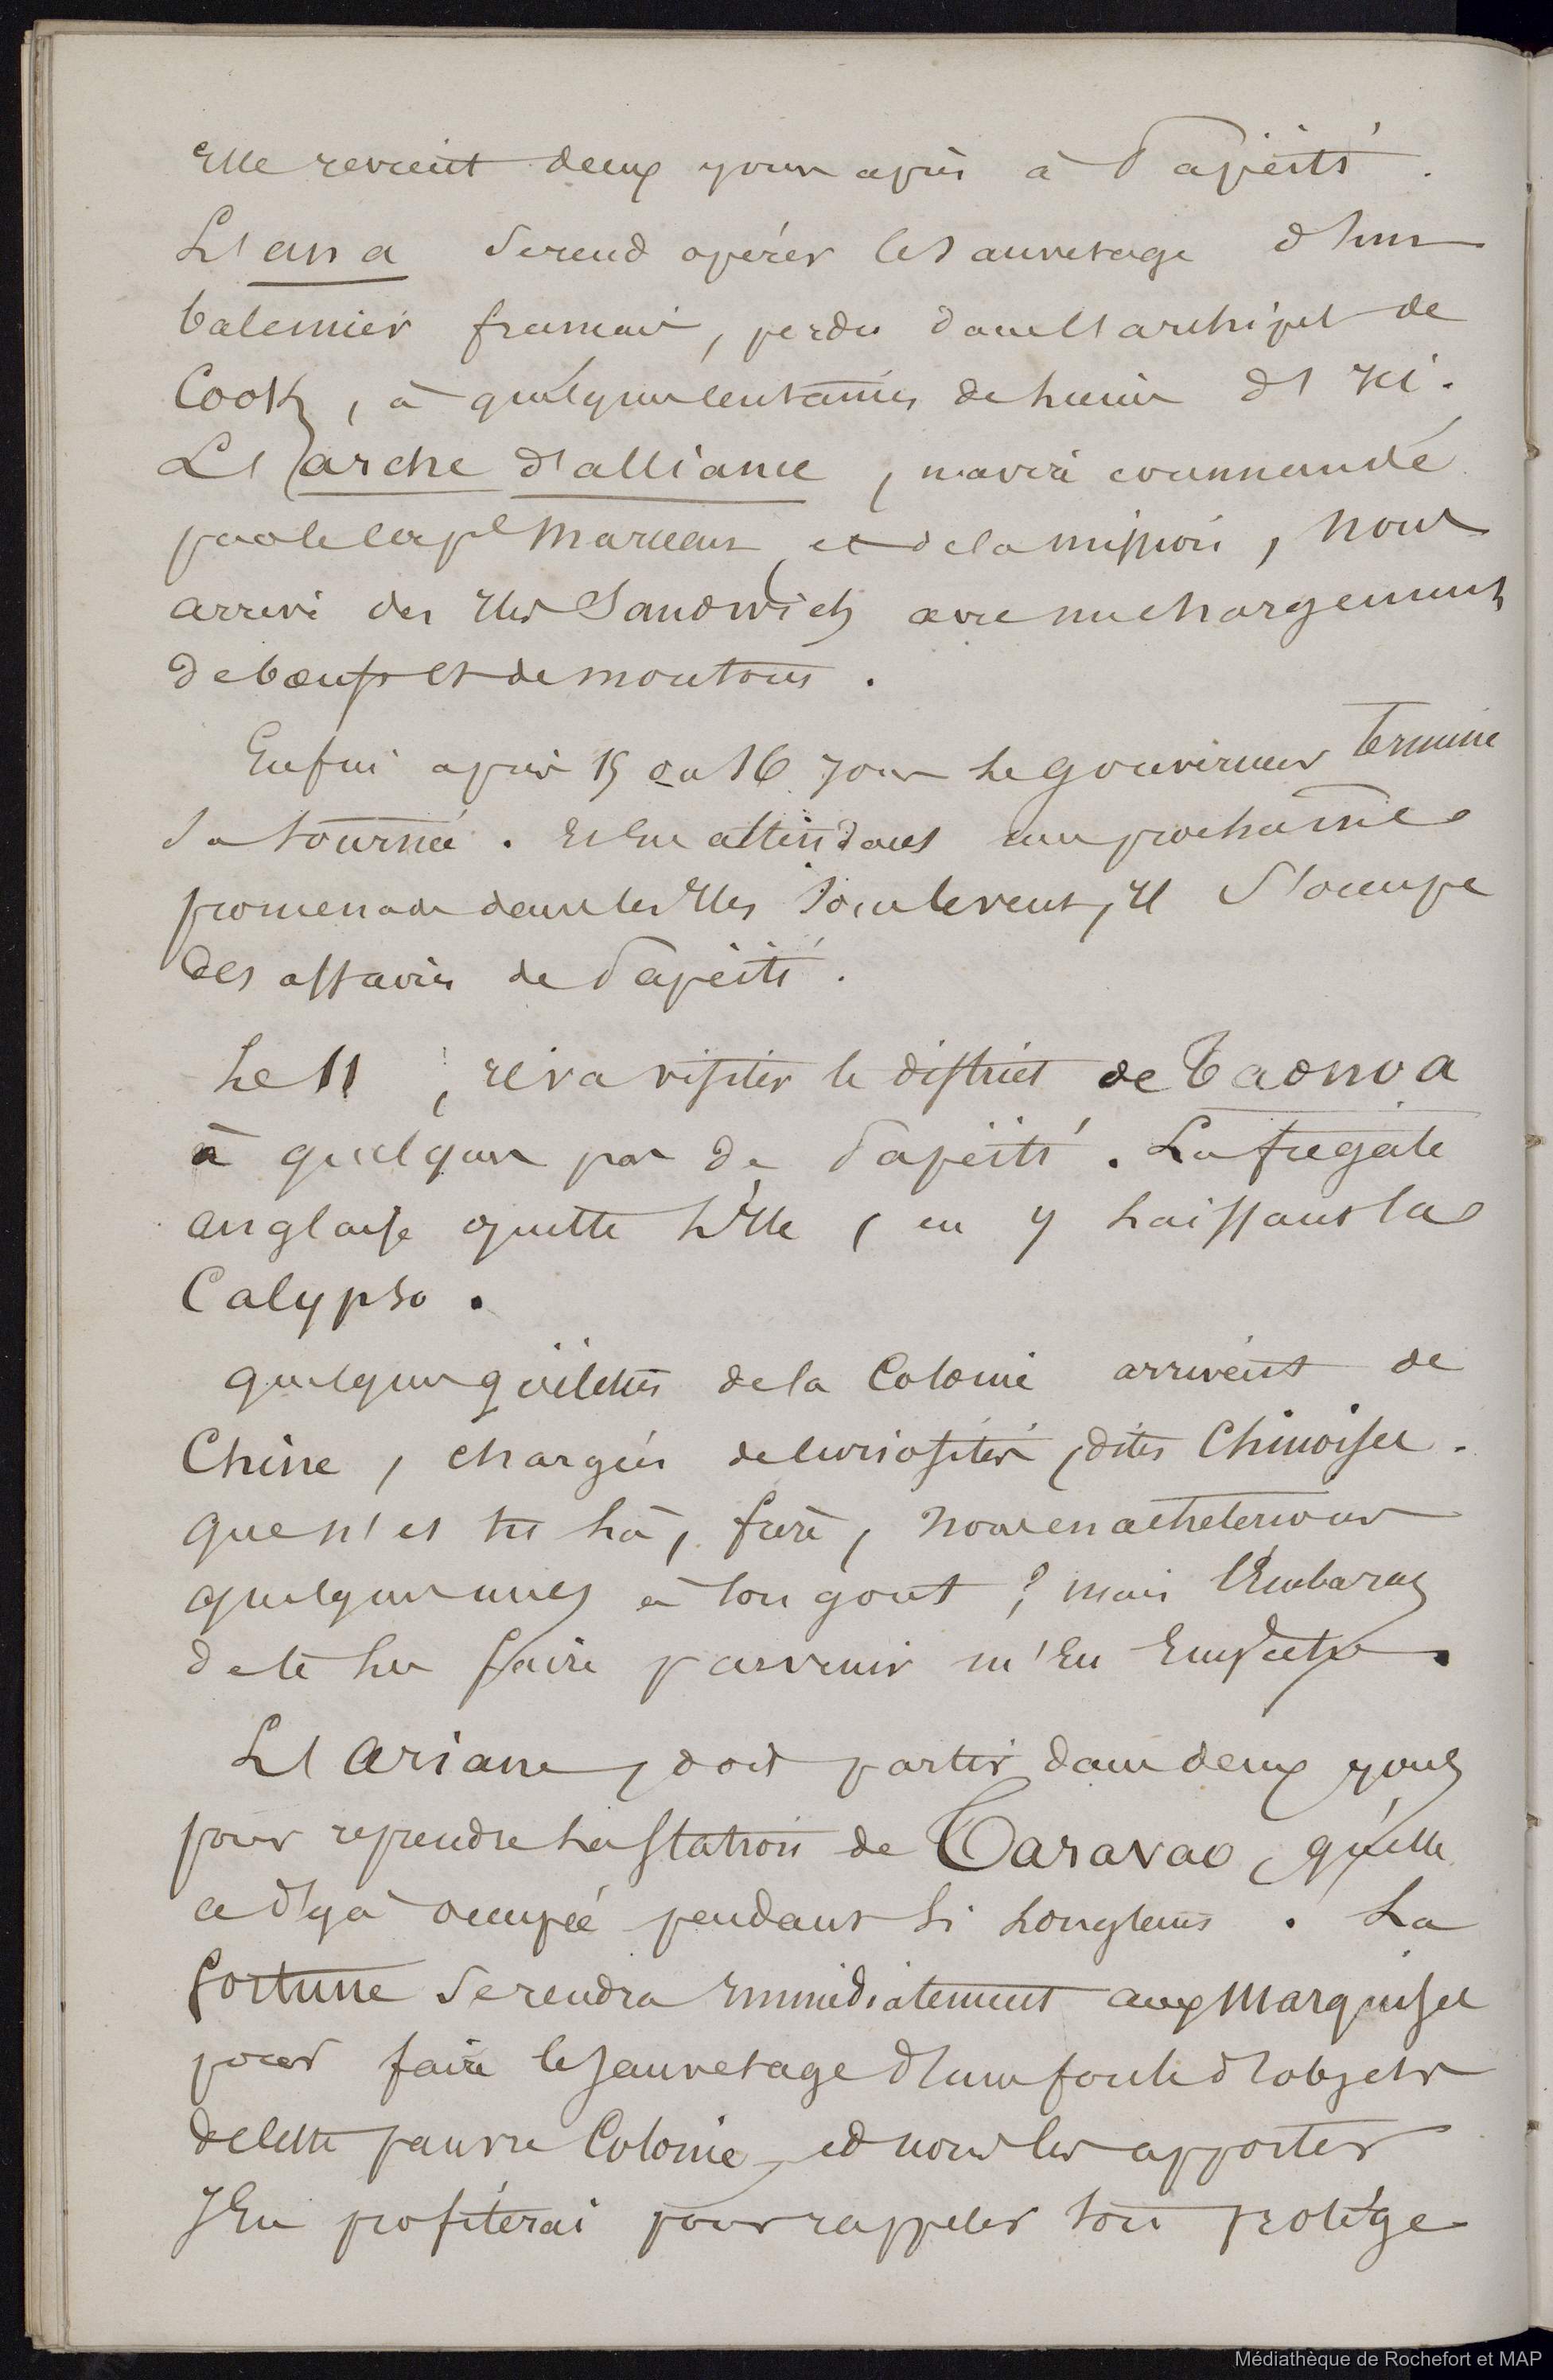 Elle revient deux jours après à Papéiti.
L'ana se rend opérer le sauvetage d'un
baleinier français, perdu dans l'archipel de
Cook, à quelques centaines de lieues d'ici.
L'arche d'alliance, navire commandé
par le cape Marceau et de la mission, nous
arrive des Iles Sandwich avec un chargement
de bœufs et de moutons.
Enfin après 15 ou 16 jours le gouverneur termine
sa tournée. et en attendant une prochaine
promenade dans les Iles sous le vent, il s'occupe
des affaires de Papéiti.
Le 11, il va visiter le district de
à quelques pas de Papéiti. La frégate
anglaise quitte l'Ile, en y laissant la
Calypso.
quelques goëlettes de la Colonie arrivent de
Chine, chargées de curiosités, dites Chinoises.
que n'es tu là, frère, nous en achèterions
quelques unes à ton gout ? mais l'Embaras
de te les faire parvenir m'En Empêche.
L'Ariane, doit partir dans deux jours
pour reprendre la station de Taravao, qu'elle
a déjà occupée pendant si longtems. La
fortune se rendra Immédiatement aux Marquises
pour faire le sauvetage d'une foule d'objets
de cette pauvre Colonie, et nous les apporter
J'En profiterai pour rappeler ton protégé
Médiathèque de Rochefort et MAP